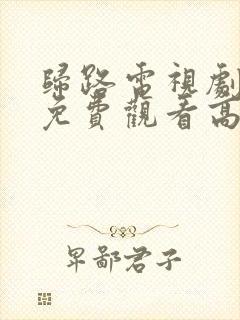 歸路電視劇
免費觀看高
卑鄙君子